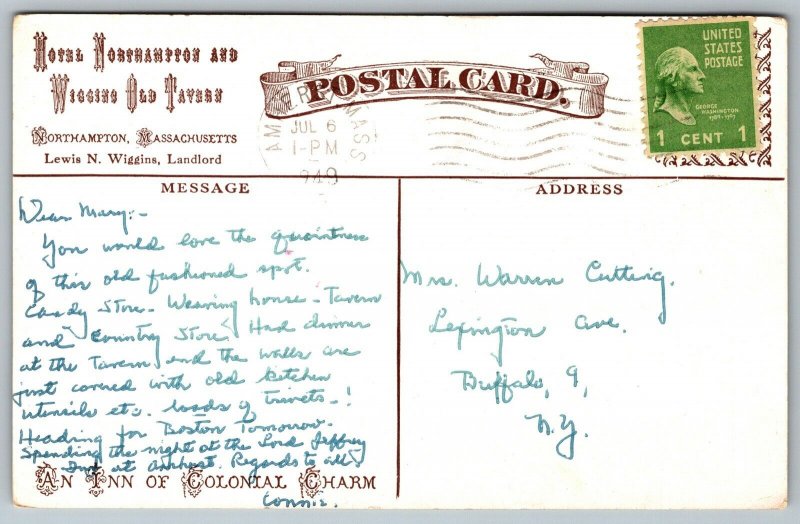 Hotel Northampton and
Wiggins Old Tavern
Northampton, Massachusetts
Lewis N. Wiggins, Landlord
POSTAL CARD.
UNITED
STATES
POSTAGE
GEORGE
WASHINGTON
1789-1797
1 CENT 1
AMHERST MASS
JUL 6
1-PM
1949
MESSAGE
Dear Mary:-
You would love the quaintness
of this old fashioned spot.
Candy Store - Weaving house - Tavern
and Country Store. Had dinner
at the Tavern and the walls are
just covered with old kitchen
utensils etc. loads of trivets - !
Heading for Boston Tomorrow.
Spending the night at the Lord Jeffrey
Inn at Amherst. Regards to all.
Connie.
An Inn of Colonial Charm
ADDRESS
Mrs. Warren Cutting.
Lexington Ave.
Buffalo, 9,
N.Y.